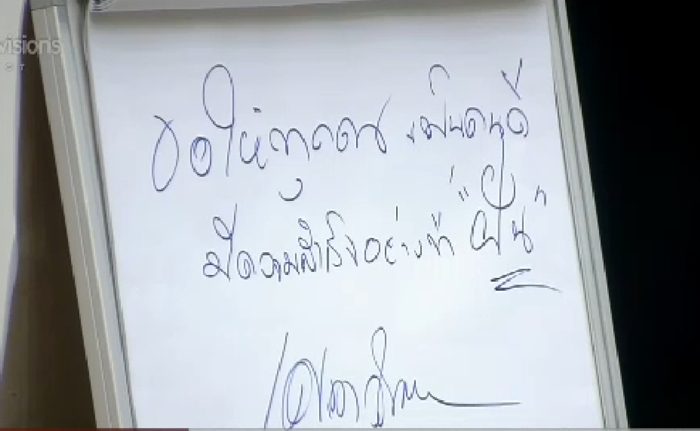 visions
ขอให้ทุกคน เป็นคนดี
มีความสำเร็จอย่างที่ "ฝัน"